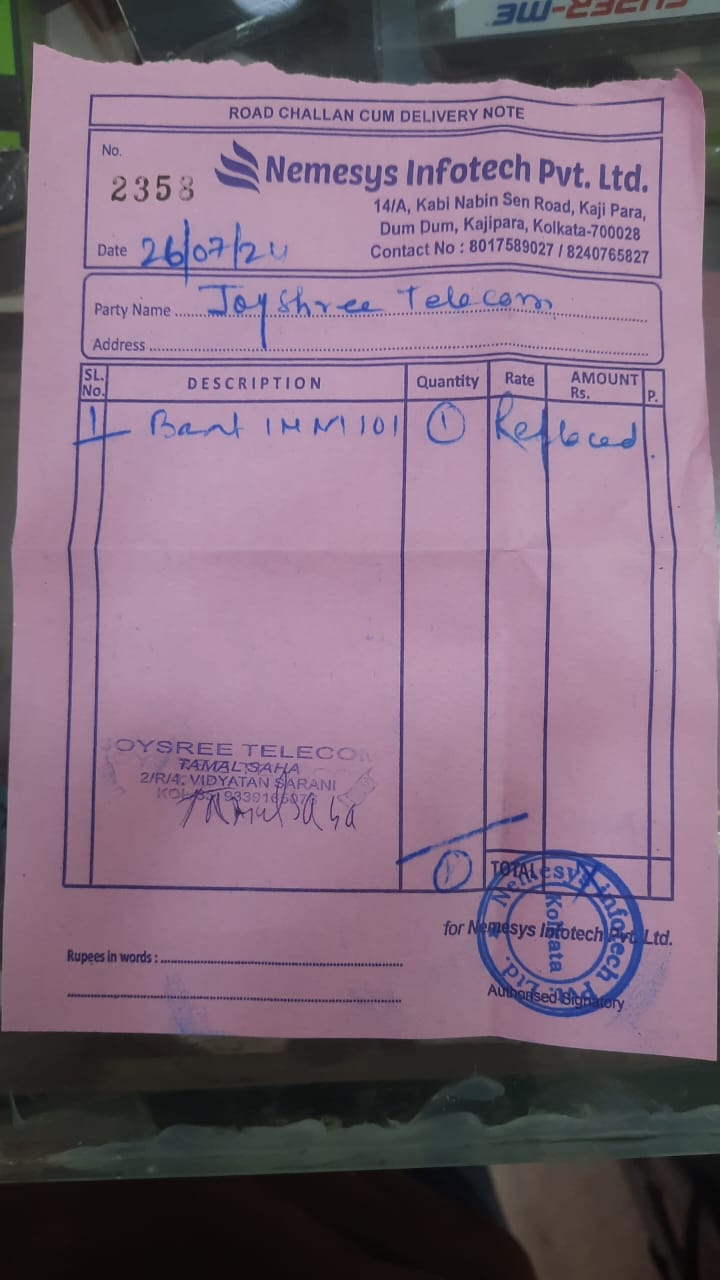 ROAD CHALLAN CUM DELIVERY NOTE
No.
2358
Nemesys Infotech Pvt. Ltd.
14/A, Kabi Nabin Sen Road, Kaji Para,
Dum Dum, Kajipara, Kolkata-700028
Contact No : 8017589027 / 8240765827
Date 26/07/24
Party Name Joyshree Telecom
Address
SL. No. DESCRIPTION Quantity Rate AMOUNT Rs. P.
1 1 Replaced.
JOYSREE TELECOM
TAMAL SAHA
2/R/4, VIDYATAN SARANI
Tamal Saha
1 TOTAL
for Nemesys Infotech Pvt. Ltd.
Nemesys Infotech Pvt. Ltd.
Kolkata
Rupees in words :
Authorised Signatory